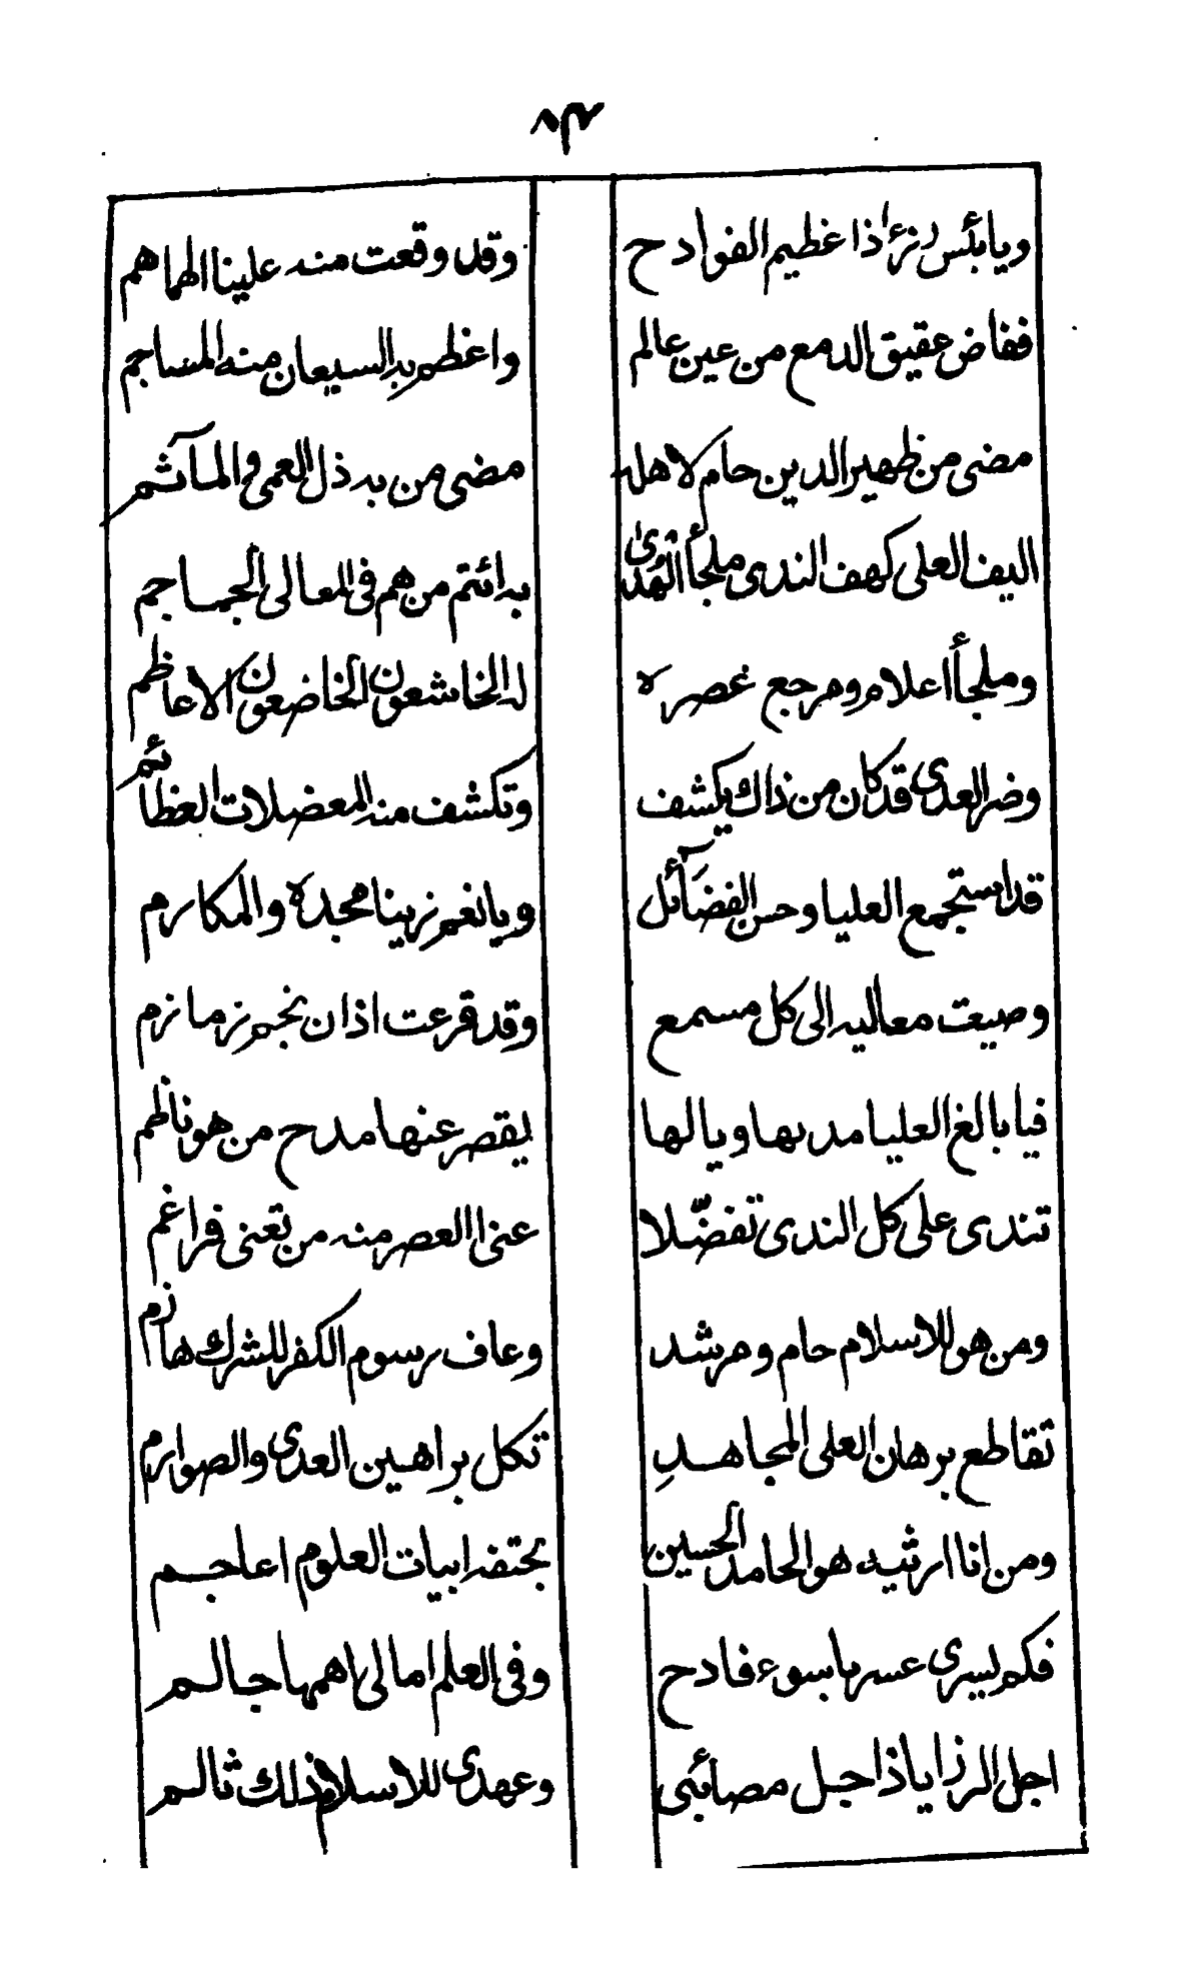 ويابئس رزء ذا عظيم الفوادح وقد وقعت منه علينا الهماهم
ففاض عقيق الدمع من عين عالم واعظم به السبعان منه المساجم
مضى من ظهير الدين حام لاهله مضى من به ذل العمى والمآثم
اليف العلى كهف الندى ملجأ الهدى به ائتم من هم فى المعالى الجماجم
وملجأ اعلام ومرجع عصره له الخاشعون الخاضعون الاعاظم
وضر العدى قد كان من ذاك يكشف وتكشف منه المعضلات العظائم
قد استجمع العليا وحسن الفضآئل ويانعم زينا مجده والمكارم
وصيت معاليه الى كل مسمع وقد قرعت اذان نجم زمازم
فيا بالغ العليا مد بها ويا لها يقصر عنها مدح من هو ناظم
تندى على كل الندى تفضّلا عنى العصر منه من تعنى فراغم
ومن هو للاسلام حام ومرشد وعاف رسوم الكفر للشرك هازم
تقاطع برهان العلى المجاهد تكل براهين العدى والصوارم
ومن انا ارثيه هو الحامد الحسين بحتفه ابيات العلوم اعاجم
فكم يسرى عسر باسوء فادح وفى العلم امالى اهمها جالم
اجل الرزايا ذا جل مصائبى وعهدى للاسلام ذلك ثالم